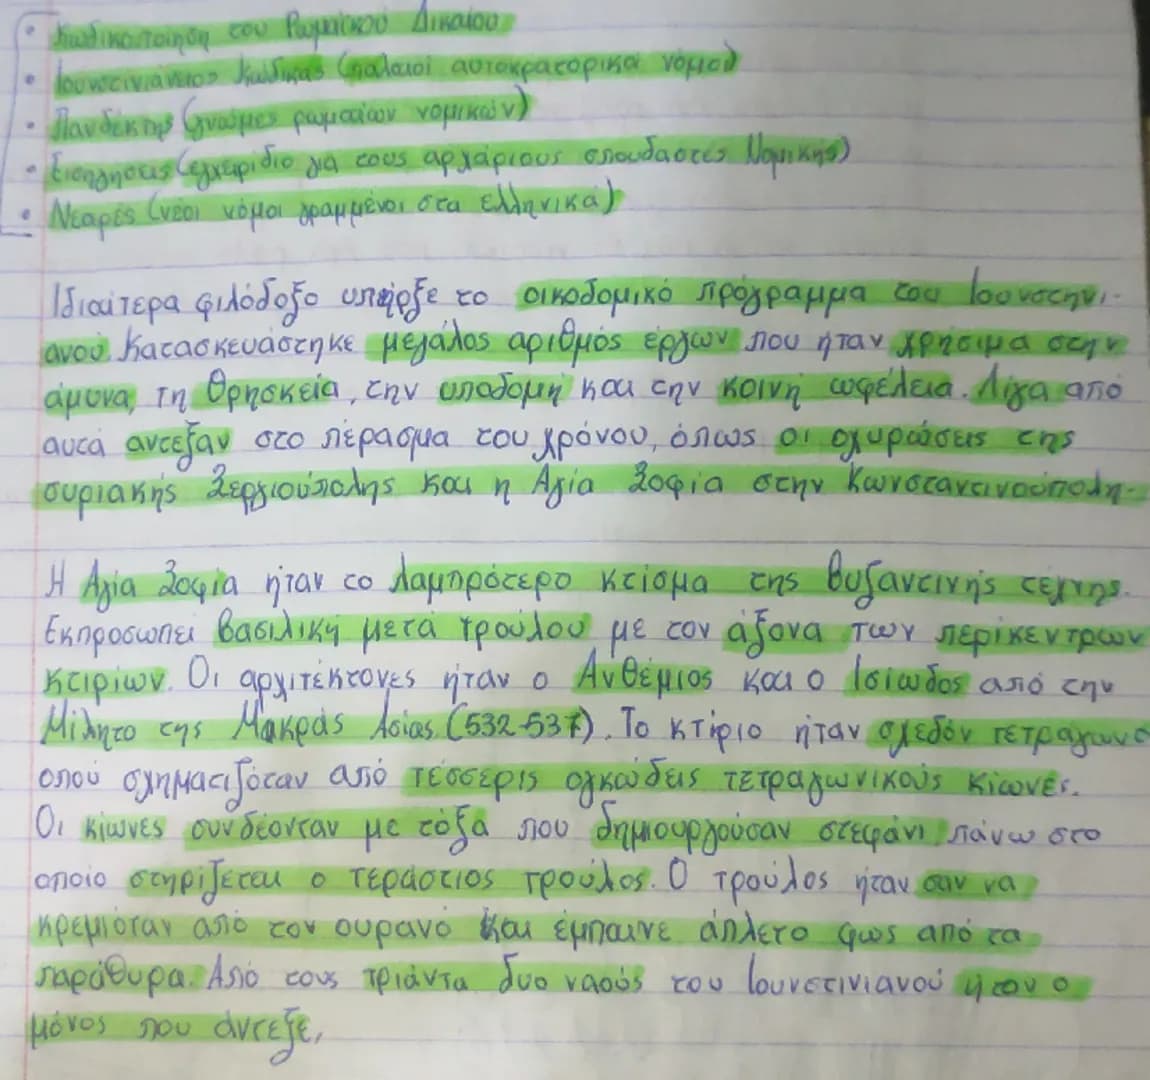 • Κωδικοποίηση του Ρωμαϊκού Δικαίου
• Ιουνστινιάνειος Κώδικας (παλαιοί αυτοκρατορικοί νόμοι)
• Πανδέκτης (γνώμες ρωμαίων νομικών)
• Εισηγήσεις (εγχειρίδιο για τους αρχάριους σπουδαστές Νομικής)
• Νεαρές (νέοι νόμοι γραμμένοι στα ελληνικά)
Ιδιαίτερα φιλόδοξο υπήρξε το οικοδομικό πρόγραμμα του Ιουνστηνι-
ανού. Κατασκευάστηκε μεγάλος αριθμός έργων που ήταν χρήσιμα στην
άμυνα, τη θρησκεία, την υποδομή και την κοινή ωφέλεια. Λίγα από
αυτά αντεξαν στο πέρασμα του χρόνου, όπως οι οχυρώσεις της
συριακής Σεργιούπολης και η Αγία Σοφία στην Κωνσταντινούπολη.
Η Αγία Σοφία ήταν το λαμπρότερο κτίσμα της βυζαντινής τέχνης.
Εκπροσωπεί βασιλική μετά τρούλου με τον άξονα των περίκεντρων
κτιρίων. Οι αρχιτέκτονες ήταν ο Ανθέμιος και ο Ισίωδος από την
Μίλητο της Μακράς Ασίας (532-537). Το κτίριο ήταν σχεδόν τετράγωνο
οπού σχηματιζόταν από τέσσερις ογκώδεις τετραγωνικούς κίωνες.
Οι κίωνες συνδέονταν με τόξα που δημιουργούσαν στεφάνι πάνω στο
οποίο στηρίζεται ο τεράστιος τρούλος. Ο τρούλος ήταν σαν να
κρεμιόταν από τον ουρανό και έμπαινε άπλετο φως από τα
παράθυρα. Από τους τριάντα δυο ναούς του Ιουνστινιανού ήταν ο
μόνος που άντεξε.